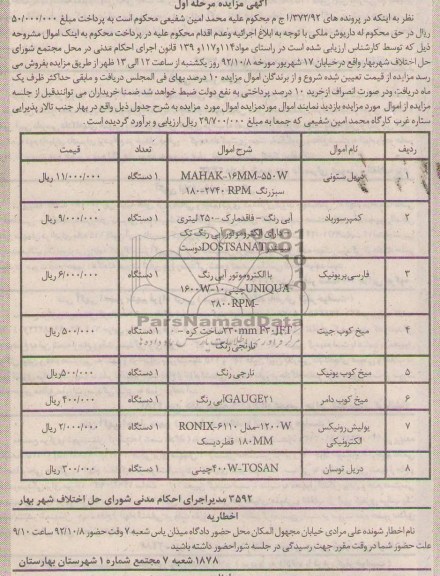 آگهی مزایده مرحله اول
نظر به اینکه در پرونده های ۳۷۲/۹۲/ا ج م محکوم علیه محمد امین شفیعی محکوم است به پرداخت مبلغ ۵۰/۰۰۰/۰۰۰
ریال در حق محکوم له داریوش ملکی با توجه به ابلاغ اجرائیه و عدم اقدام محکوم علیه در پرداخت محکوم به اینک اموال مشروحه
ذیل که توسط کارشناس ارزیابی شده است در راستای مواد ۱۱۴و۱۱۷و ۱۳۹ قانون اجرای احکام مدنی در محل مجتمع شورای
حل اختلاف شهربهار واقع درخیابان ۱۷ شهریور مورخه ۹۲/۱۰/۸ روز یکشنبه از ساعت ۱۲ الی ۱۳ ظهر از طریق مزایده بفروش می
رسد مزایده از قیمت تعیین شده شروع و از برندگان اموال مزایده ۱۰ درصد بهای فی المجلس دریافت و مابقی حداکثر ظرف یک
ماه دریافت ودر صورت انصراف ازخرید ۱۰ درصد پرداختی به نفع دولت ضبط خواهد شد ضمنا خریداران می توانندقبل از جلسه
مزایده از اموال مورد مزایده بازدید نمایند اموال موردمزایده اموال مورد مزایده به شرح جدول ذیل واقع در بهار جنب تالار پذیرایی
ستاره غرب کارگاه محمد امین شفیعی که جمعا به مبلغ ۲۹/۷۰۰/۰۰۰ ریال ارزیابی و برآورد گردیده است.
ردیف نام اموال شرح اموال تعداد قیمت
۱ دریل ستونی MAHAK-۱۶MM-۵۵۰W ۱ دستگاه ۱۱/۰۰۰/۰۰۰ ریال
سبزرنگ ۱۸۰-۲۷۴۰ RPM
۲ کمپرسورباد آبی رنگ – فاقدمارک – ۲۵۰ لیتری ۱ دستگاه ۹/۰۰۰/۰۰۰ ریال
دارای الکتروموتور آبی رنگ تک
DOSTSANAT دوست
۳ فارسی بر یونیک با الکتروموتور آبی رنگ ۱ دستگاه ۶/۰۰۰/۰۰۰ ریال
UNIQUA چینی ۱۰-۱۶۰۰W
۲۸۰۰RPM-
۴ میخ کوب جیت ۳۳۰mm F۳۰JET ساخت کره – ۱ دستگاه ۵۰۰/۰۰۰ ریال
نارنجی رنگ
ParsNamadData
۵ میخ کوب یونیک نارجی رنگ ۱ دستگاه ۵۰۰/۰۰۰ریال
۶ میخ کوب دامر GAUGE۲۱آبی رنگ ۱ دستگاه ۴۰۰/۰۰۰ ریال
۷ پولیش رونیکس ۱۲۰۰W-مدل RONIX-۶۱۱۰ ۱ دستگاه ۲/۰۰۰/۰۰۰ ریال
الکترونیکی ۱۸۰MM قطر دیسک
۸ دریل توسان ۴۰۰W-TOSANچینی ۱ دستگاه ۳۰۰/۰۰۰ ریال
۳۵۹۲ مدیراجرای احکام مدنی شورای حل اختلاف شهر بهار
اخطاریه
نام اخطار شونده علی مرادی خیابان مجهول المکان محل حضور دادگاه میدان یاس شعبه ۷ وقت حضور ۹۲/۱۰/۸ ساعت ۹/۱۰
علت حضور شما در وقت مقرر جهت رسیدگی در جلسه شورا حضور داشته باشید.
۱۸۷۸ شعبه ۷ مجتمع شماره ۱ شهرستان بهارستان